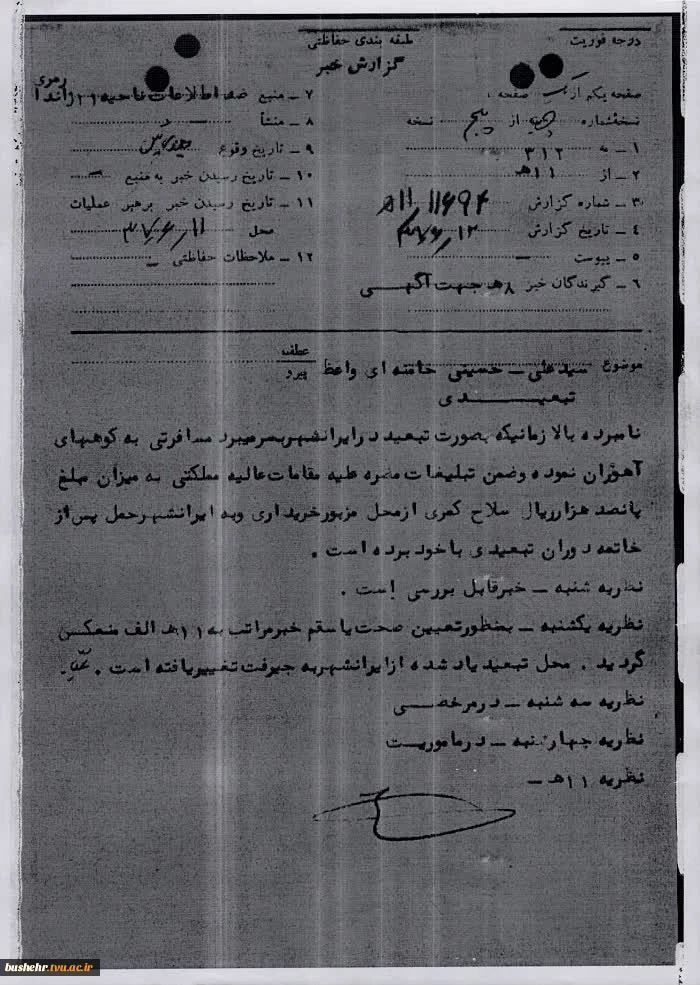 درجه فوریت
طبقه بندی حفاظتی
گزارش خبر
صفحه یکم از یک صفحه
نسخه‌شماره از پنج نسخه
۱ ـ به ۳۱۲
۲ ـ از ۱۱ هـ
۳ ـ شماره گزارش ۱۱۶۹۴ / ۱۱هـ
۴ ـ تاریخ گزارش
۵ ـ پیوست ـ
۶ ـ گیرندگان خبر ۸ هـ جهت آگهی
رمزی
۷ ـ منبع ضد اطلاعات ناحیه ۲۱ ژاندا
۸ ـ منشأ
۹ ـ تاریخ وقوع
۱۰ ـ تاریخ رسیدن خبر به منبع ـ
۱۱ ـ تاریخ رسیدن خبر برهبر عملیات
محل
۱۲ ـ ملاحظات حفاظتی ـ
موضوع سید علی ـ حسینی خامنه ای واعظ
عطف
پیرو
تبعیدی
نامبرده بالا زمانیکه بصورت تبعید در ایرانشهر بسر میبرد مسافرتی به کوههای
آهوران نموده وضمن تبلیغات مضره علیه مقامات عالیه مملکتی به میزان مبلغ
پانصد هزار ریال سلاح کمری از محل مزبور خریداری وبه ایرانشهر حمل پس از
خاتمه دوران تبعیدی با خود برده است .
نظریه شنبه ـ خبر قابل بررسی است .
نظریه یکشنبه ـ بمنظور تعیین صحت یا سقم خبر مراتب به ۱۱ هـ الف منعکس
گردید . محل تبعید یاد شده از ایرانشهر به جیرفت تغییر یافته است .
نظریه سه شنبه ـ در مرخصی
نظریه چهارشنبه ـ در ماموریت
نظریه ۱۱ هـ ـ
bushehr.tvu.ac.ir